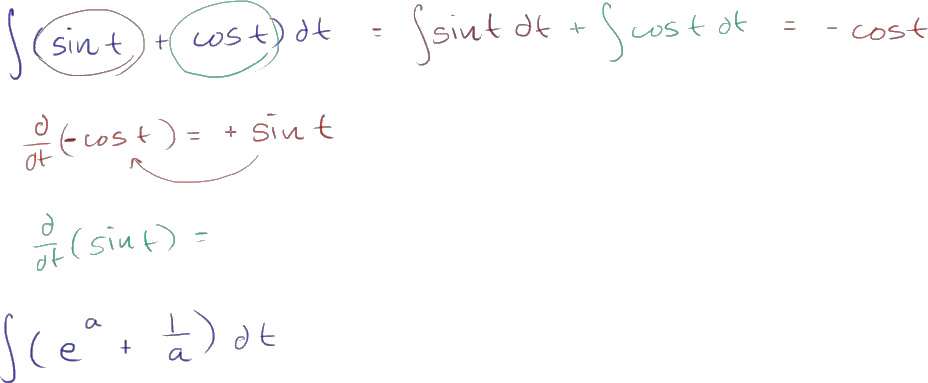 ∫(sin t + cos t) dt = ∫sin t dt + ∫cos t dt = - cos t
d/dt (-cos t) = + sin t
d/dt (sin t) =
∫(e^a + 1/a) dt